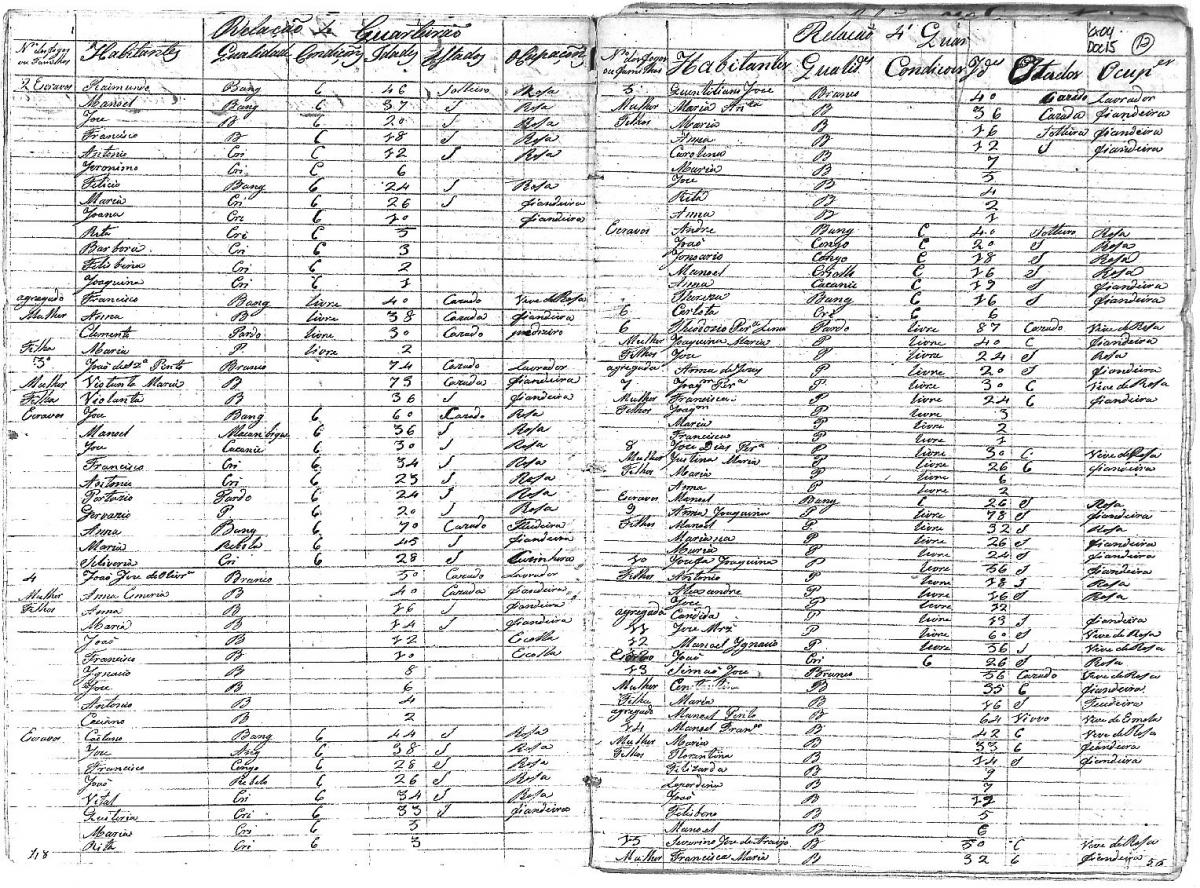 Relação 4º Quarteirão
Nos dos Fogos ou Familhas Habitantes Qualidades Condições Idades Estados Ocupações
2 Escravos Raimundo Bang C 46 Solteiro Rosa
Manoel Bang C 37 S Rosa
Joze B C 20 S Rosa
Francisco B C 18 S Rosa
Antonio Cri C 12 S Rosa
Jeronimo Cri C 6
Felicio Bang C 24 S Rosa
Maria Cri C 26 S fiandeira
Joana Cri C 10 fiandeira
Rita Cri C 5
Barbora Cri C 3
Felisbina Cri C 2
Joaquina Cri C 1
agregado Francisco Bang livre 40 Cazado Vive de Rosa
Mulher Anna B livre 38 Cazada fiandeira
Clemente Pardo livre 30 Cazado pedreiro
Filha Maria P livre 2
3 João Branco 74 Cazado Lavrador
Mulher Violante Maria B 73 Cazada fiandeira
Filha Violanta B 36 S fiandeira
Escravos Joze Bang C 60 Cazado Rosa
Manoel Mocambique C 36 S Rosa
Joze Cacanje C 30 S Rosa
Francisco Cri C 34 S Rosa
Antonio Cri C 23 S Rosa
Portazio Pardo C 24 S Rosa
Gervazio P C 20 S Rosa
Anna Bang C 70 Cazado
Maria Rebolo C 45 S fiandeira
Silveria Cri C 28 S
4 João Joze de Olivra Branco 50 Cazado Lavrador
Mulher Anna B 40 Cazada fiandeira
Filhos Anna B 16 S fiandeira
Maria B 14 S fiandeira
João B 12 Escolla
Francisco B 10 Escolla
Ignacio B 8
Joze B 6
Antonio B 4
Caciano B 2
Escravos Caetano Bang C 44 S Rosa
Joze C 38 S Rosa
Francisco Congo C 28 S Rosa
João Rebolo C 26 S Rosa
Vital Cri C 34 S Rosa
Quiteria Cri C 33 S fiandeira
Maria Cri C 5
Rita Cri C 3
118
Relação 4º Quar
Cx04 Doc15 12
Nos dos Fogos ou Familhas Habitantes Qualides Condicois Ides Estados Ocupes
5 Quintiliano Joze Branco 40 Cazado Lavrador
Mulher Maria B 36 Cazada fiandeira
Filhos Maria B 16 Solteira fiandeira
Anna B 12 S fiandeira
Carolina B 7
Maria B 5
Joze B 4
Rita B 2
Anna B 1
Escravos Andre Bang C 40 Solteiro Rosa
João Congo C 20 S Rosa
Congo C 18 S Rosa
Manoel C 16 S Rosa
Anna Cacanje C 19 S fiandeira
Thereza Bang C 16 S fiandeira
6 Carlota Cri C 6
6 Theodozio Pera Lima Pardo livre 87 Cazado Vive de Rosa
Mulher Joaquina Maria P livre 40 C fiandeira
Filhos Joze P livre 24 S Rosa
agregada Anna de Jezus P livre 20 S fiandeira
7 Joaqm Pera P livre 30 C Vive de Rosa
Mulher Francisca P livre 24 C fiandeira
Filhos Joaqm P livre 3
Maria P livre 2
Francisca P livre 1
8 Joze Dias Pera P livre 30 C Vive de Rosa
Mulher Justina Maria P livre 26 C fiandeira
Filhos Maria P livre 6
Anna P livre 2
Escravos Manoel Bang 26 S Rosa
9 Anna Joaquina P livre 78 S fiandeira
Filhos Manoel P livre 32 S Rosa
Mariana P livre 26 S fiandeira
Maria P livre 24 S fiandeira
10 Joaquina P livre 56 S fiandeira
Filhos Antonio P livre 18 S Rosa
Alexandre P livre 16 S Rosa
Joze P livre 12
agregada Candida P livre 13 S fiandeira
11 Joze P livre 60 S Vive de Rosa
12 Manoel Ignacio P livre 56 S Vive de Rosa
Escravo João Cri C 26 S Rosa
13 Simão Joze Branco 56 Cazado Vive de Rosa
Mulher B 35 C fiandeira
Filha Maria B 16 S
agregado Manoel B 64 Viuvo Vive de Esmola
14 Manoel Franco B 42 C Vive de Rosa
Mulher Maria B 33 C fiandeira
Filhos Florentina B 14 S fiandeira
Felizarda B 9
B 7
João B 12
Felisbeno B 5
Manoel B 6
15 Severino Joze de Araujo B 50 C Vive de Rosa
Mulher Francisca Maria B 32 C fiandeira
56